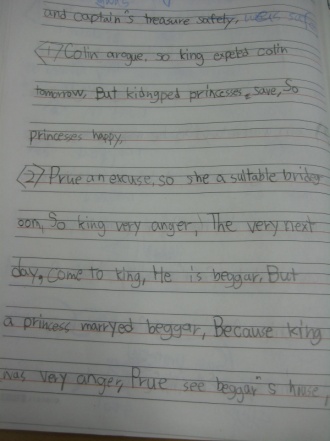 and captain's treasure safety,
<1> Colin aregue, so king expebs colin
tomorrow, But kidngped princesses, save, So
princeses happy,
<2> Prue an excuse, so she a suitable bridegr
oon, So king very anger, The very next
day, come to king, He is beggar, But
a princess marryed beggar, Because king
was very anger, Prue see beggar's house,